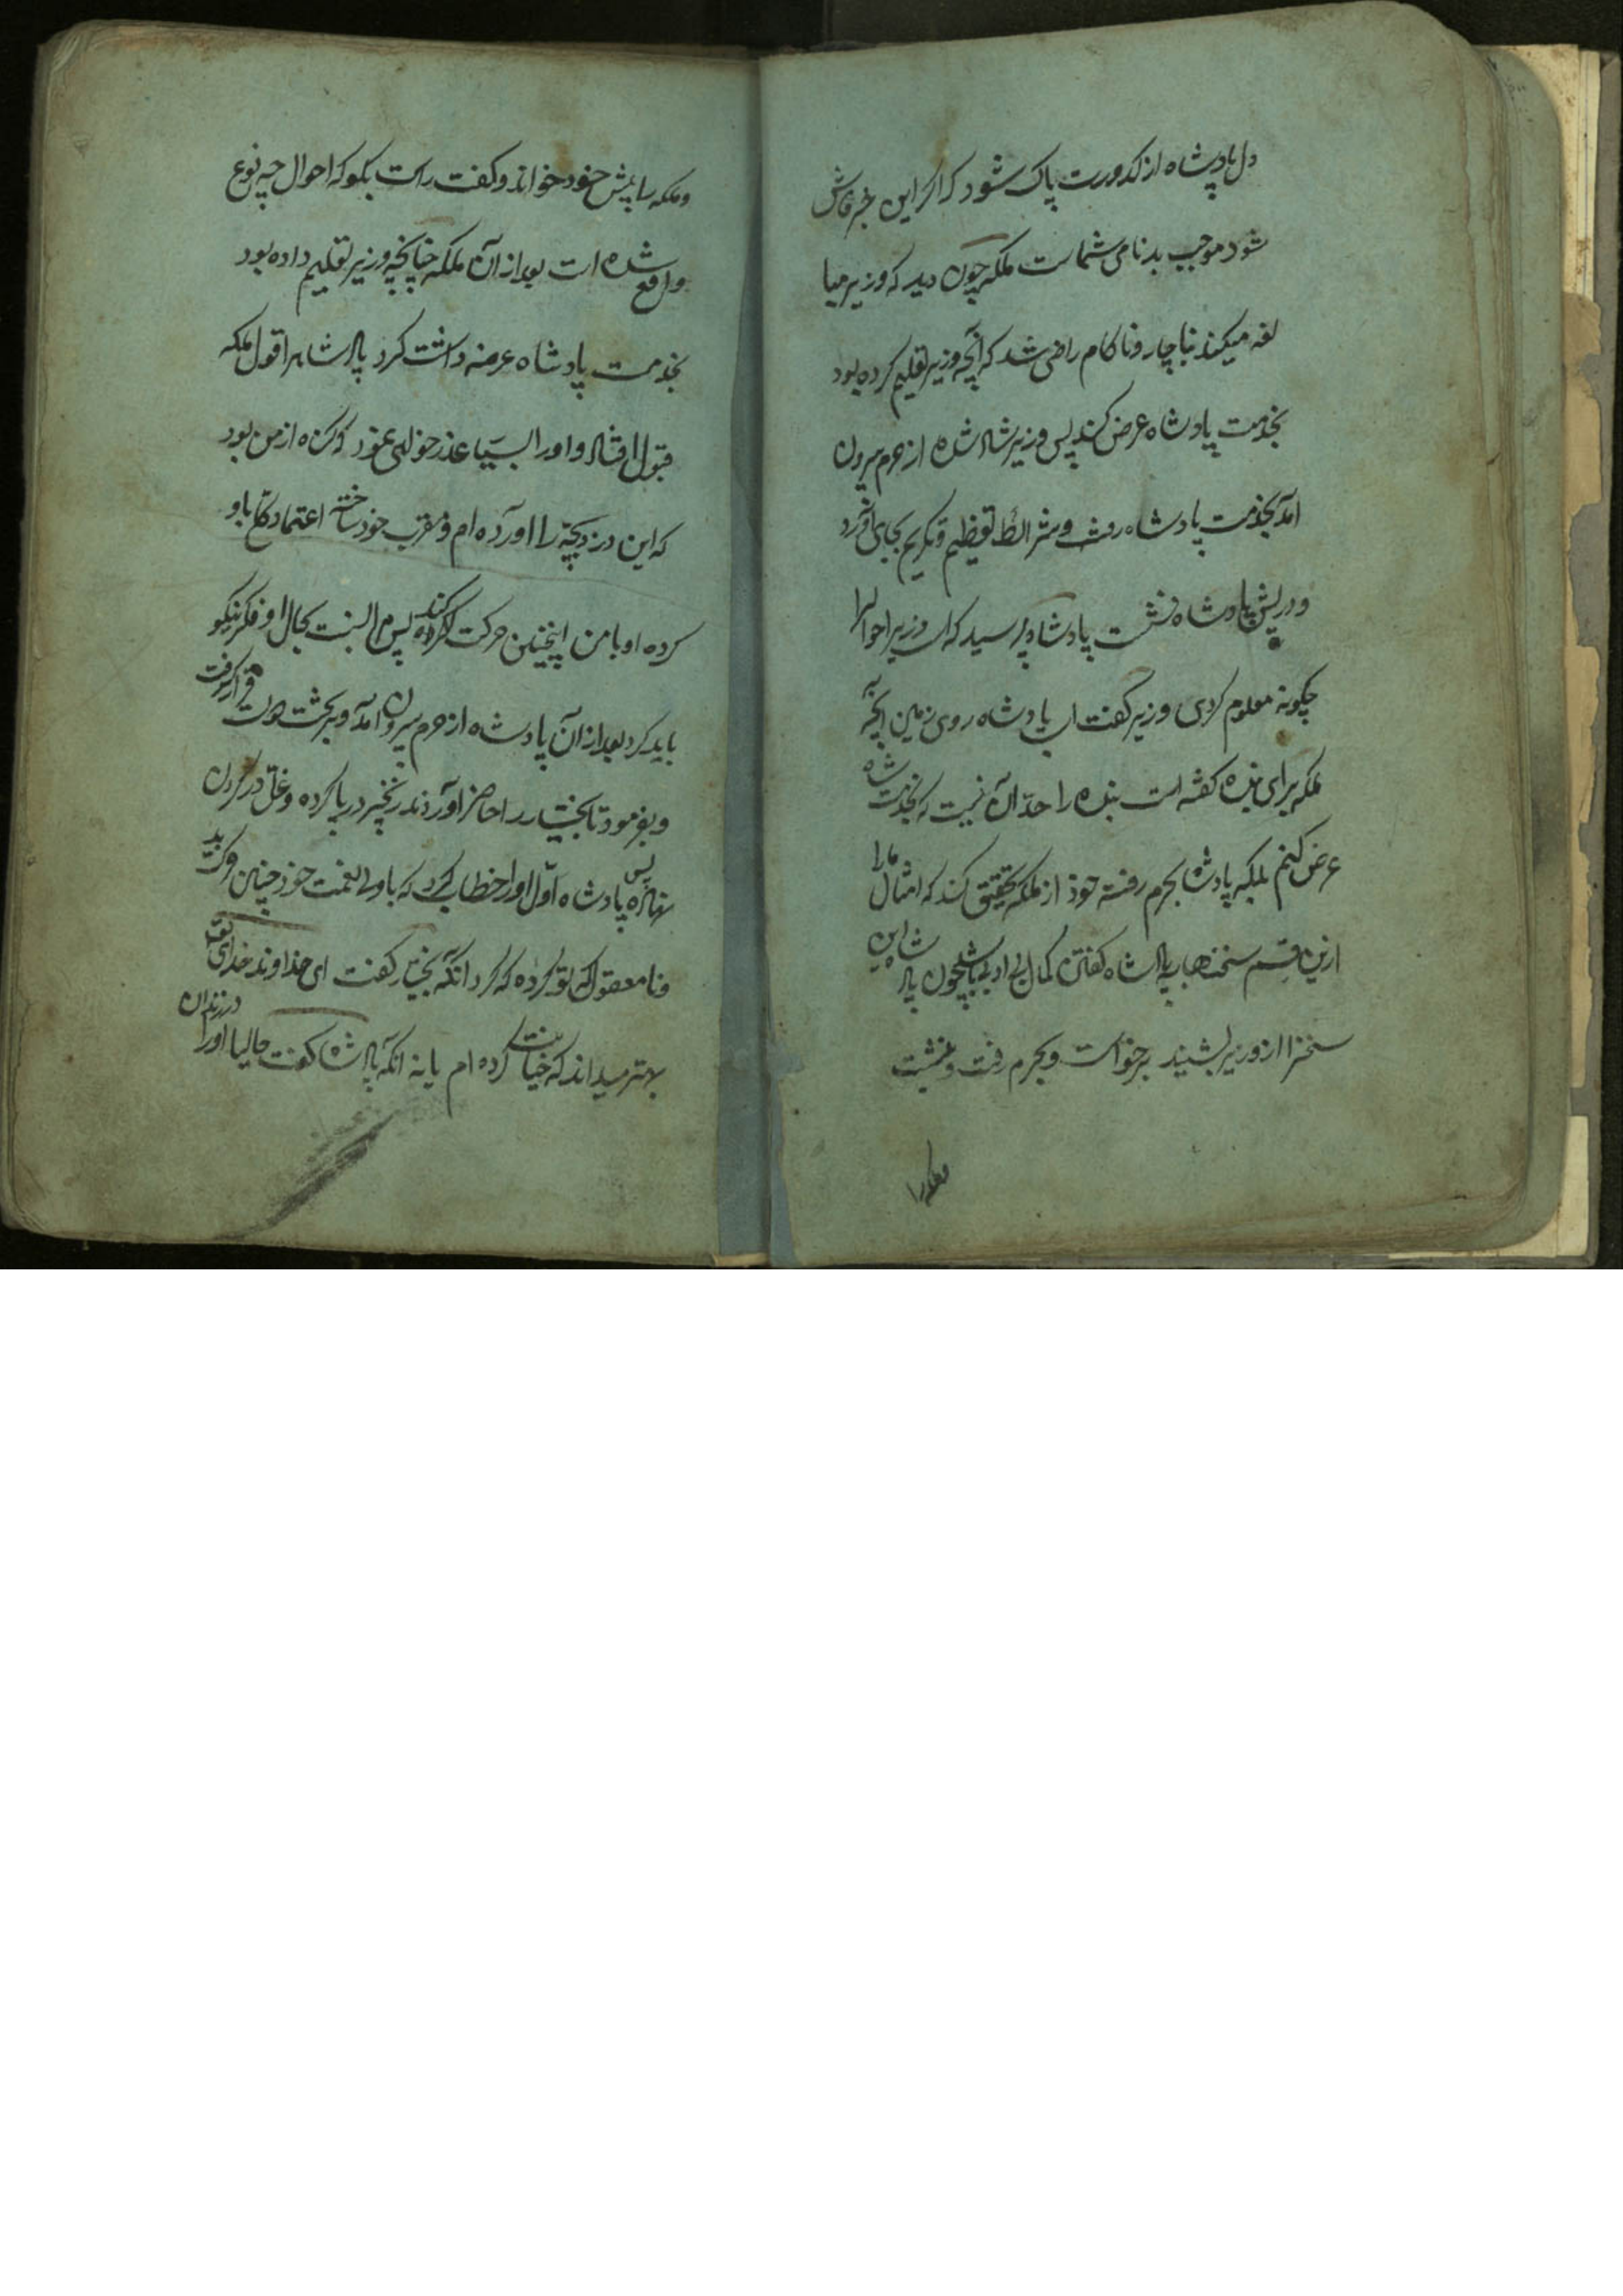 دل پادشاه از کدورت پاک شود که اگر این خبر فاش
شود موجب بدنامی شماست ملکه چون دید که وزیر مبا
لغه میکند بناچار و ناکام راضی شد که آنچه وزیر تعلیم کرده بود
بخدمت پادشاه عرض کند پس وزیر شاد شده از حرم بیرون
آمد بخدمت پادشاه رفت و شرائط تعظیم و تکریم بجای آورد
و در پیش پادشاه نشست پادشاه پرسید که ای وزیر احوال را
چگونه معلوم کردی وزیر گفت ای پادشاه روی زمین آنچه
ملکه برای بنده گفته است بنده را حد آن نیست که بخدمت شاه
عرض کنم بلکه پادشاه بحرم رفته خود از ملکه تحقیق کند که امثال مارا
ازین قسم سخنها به پادشاه گفتن کمال بی ادبی باشد چون پاد شاه این
سخنرا از وزیر بشنید برخواست و بحرم رفت و بنشست
و ملکه را پیش خود خواند و گفت راست بگو که احوال چه نوع
واقع شده است بعد از آن ملکه چنانچه وزیر تعلیم داده بود
بخدمت پادشاه عرضه داشت کرد پادشاه را قول ملکه
قبول افتاد و او را بسیار عذر خواهی نمود که گناه از من بود
که این دزد بچه را آورده ام و مقرب خود ساخته اعتماد کلی باو
کرده او با من اینچنین حرکت کند پس البت بحال او فکر نیکو
باید کرد بعد از آن پادشاه از حرم بیرون آمد و بر تخت قرار گرفت
و بفرمود تا بختیار را حاضر آوردند زنجیر در پا کرده و غل در گردن
نهاده پس پادشاه اول او را خطاب کرد که با ولی نعمت خود چنین حرکت بد
و نامعقول که تو کرده که کرد آنگه بختیار گفت ای خداوند خدای تعالی
بهتر میداند که خیانت کرده ام یا نه آنگه پادشاه گفت حالیا او را در زندان